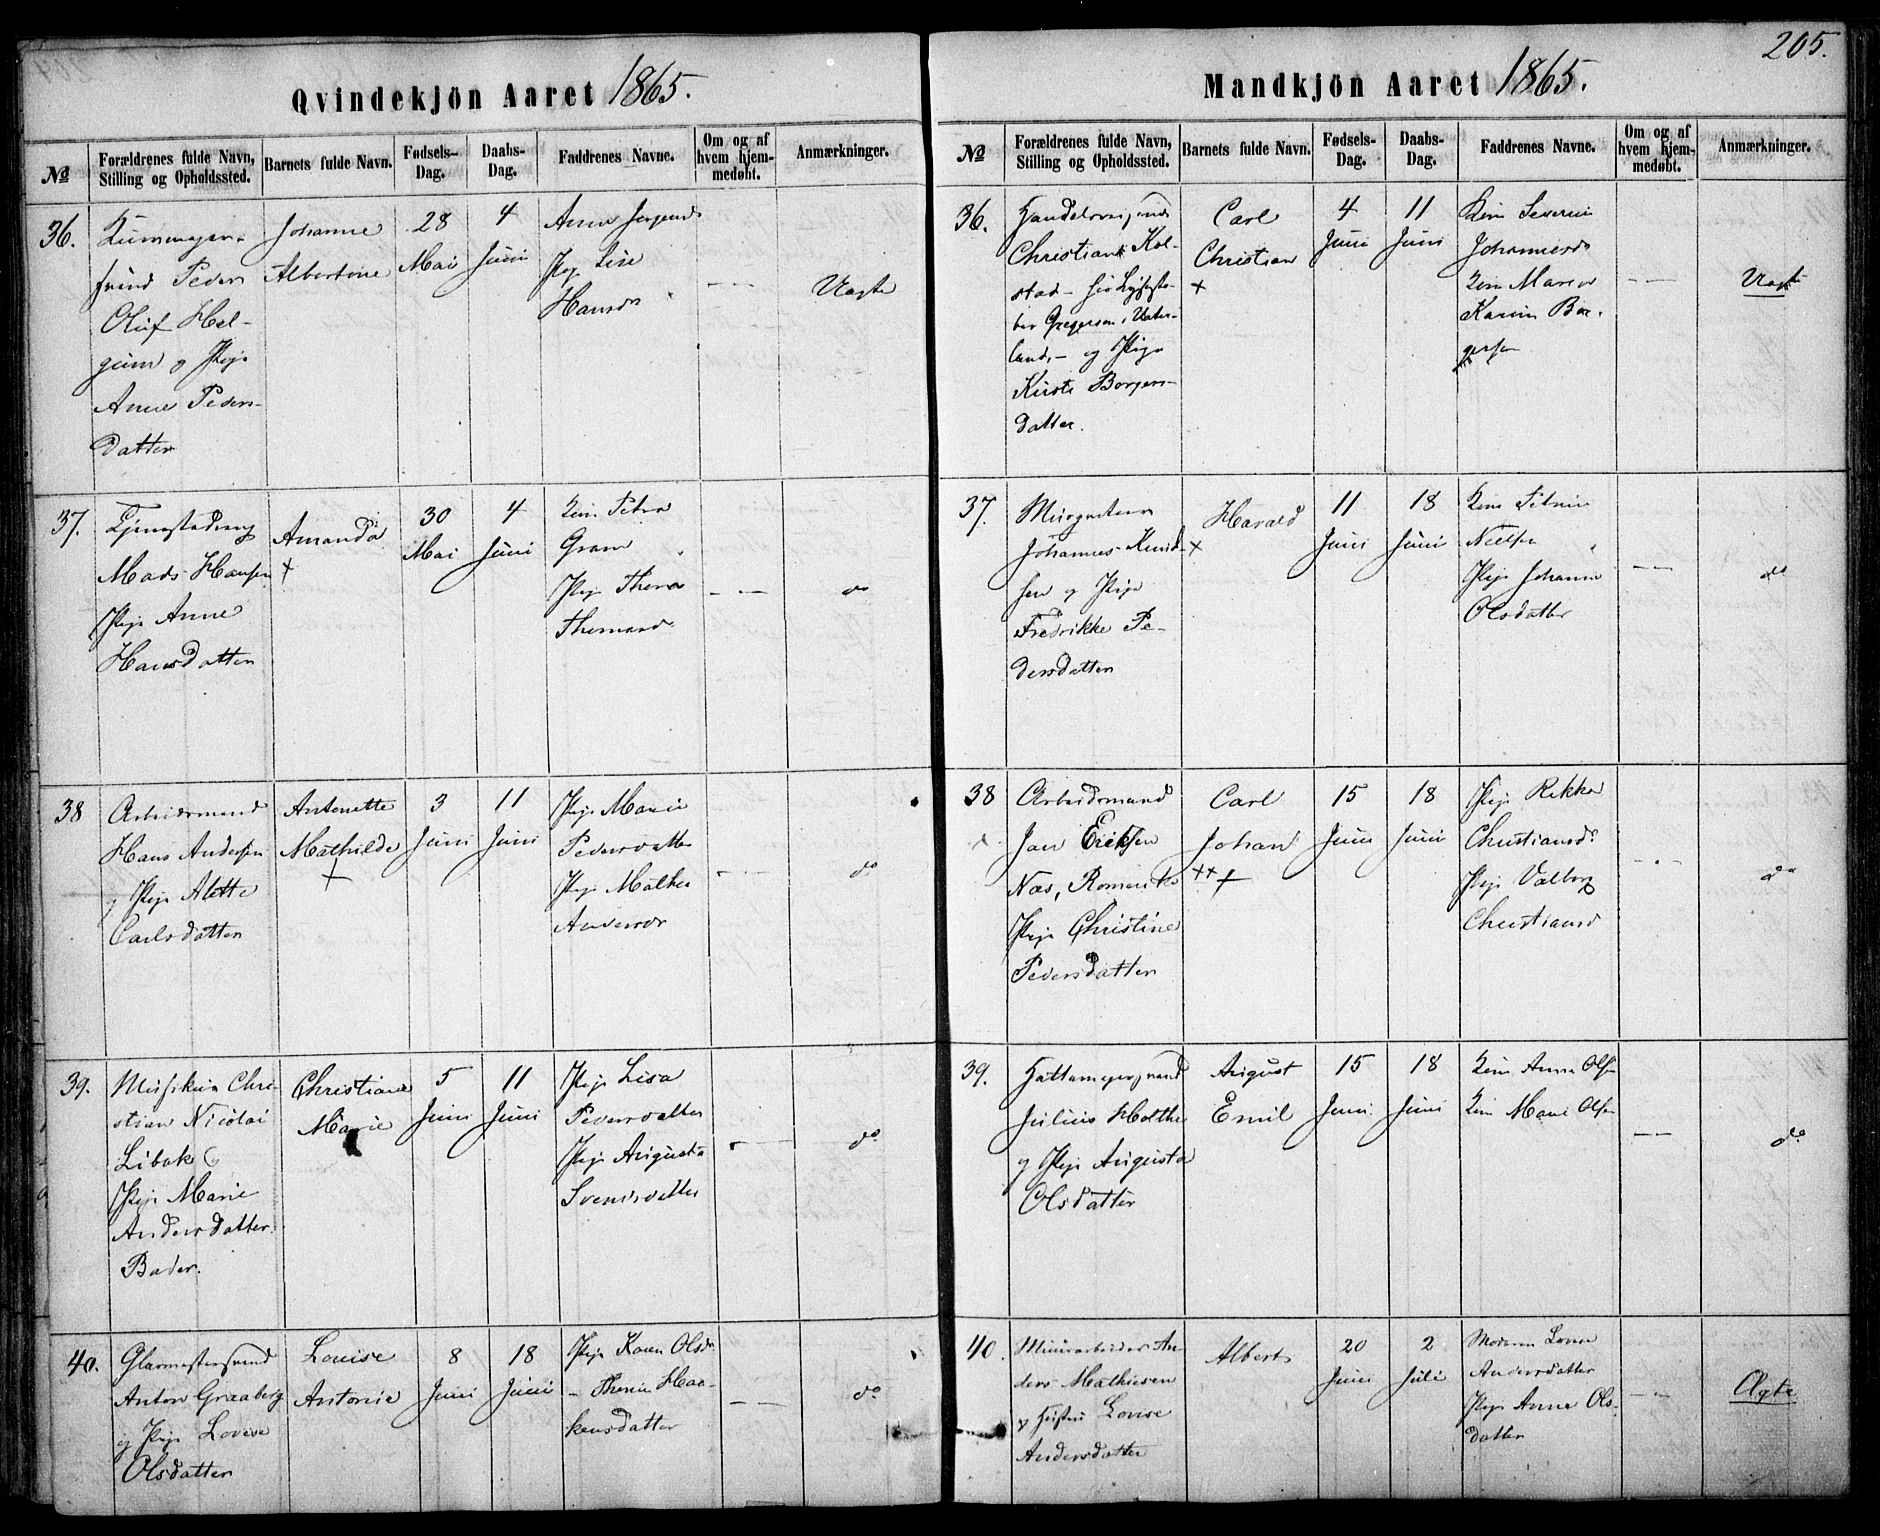 205.
Qvindekjön Aaret 1865.
№
Forældrenes fulde Navn,
Stilling og Opholdssted.
Barnets fulde Navn.
Fødsels-
Dag.
Daabs-
Dag.
Faddrenes Navne.
Om og af
hvem hjem-
medøbt.
Anmærkninger.
36.
svend Peder
Oluf Hel-
gum og Pige
Anne Peders-
datter
Johanne
Albertine
28
Mai
4
Juni
Anne
Pige Lise
Uægte
37.
Mads Hansen
Pige Anne
Hansdatter
Amanda
+
30
Mai
4
Juni
Petra
Gram
Pige Thena
do
38
Arbeidsmand
Hans Andersen
og Pige Alette
Carlsdatter
Antonette
Mathilde
+
3
Juni
11
Juni
Pige Marie
Pedersdatter
Pige Mathea
do
39.
Musikus Chri-
stian Nicolai
Libak
Pige Marie
Andersdatter
Christiane
Marie
5
Juni
11
Juni
Pige Lisa
Pedersdatter
Pige Augusta
Svensdatter
do
40.
Glarmestersvend
Anton Graaberg
og Pige Lovise
Olsdatter
Louise
Antonie
8
Juni
18
Juni
Pige Karen Olsd.
Haa-
kensdatter
do
Mandkjön Aaret 1865.
№
Forældrenes fulde Navn,
Stilling og Opholdssted.
Barnets fulde Navn.
Fødsels-
Dag.
Daabs-
Dag.
Faddrenes Navne.
Om og af
hvem hjem-
medøbt.
Anmærkninger.
36.
Christian Kol-
stad
Gregersen, Vater-
land, og Pige
Borgers-
datter.
Carl
Christian
+
4
Juni
11
Juni
Severin
Maren
Karin Bor-
gersen
Uægte
37.
Johannes Knud-
sen og Pige
Fredrikke Pe-
dersdatter
Harald
+
11
Juni
18
Juni
Pige Johanne
Olsdatter
do
38
Arbeidsmand
Jan Eriksen
Næs, Romerike
Pige Christine
Pedersdatter
Carl
Johan
+++
15
Juni
18
Juni
Pige Rikka
Christiansd.
Pige Valborg
Christiansd
do
39.
Hattemagersvend
Julius Holthe
og Pige Augusta
Olsdatter
August
Emil
15
Juni
18
Juni
Anna Olsen
Marie Olsen
do
40.
Murarbeider An-
ders Mathiesen
og Hustru Lovise
Andersdatter
Albert
20
Juni
2
Juli
Moderen Lovise
Andersdatter
Pige Anne Ols-
datter
Ægte